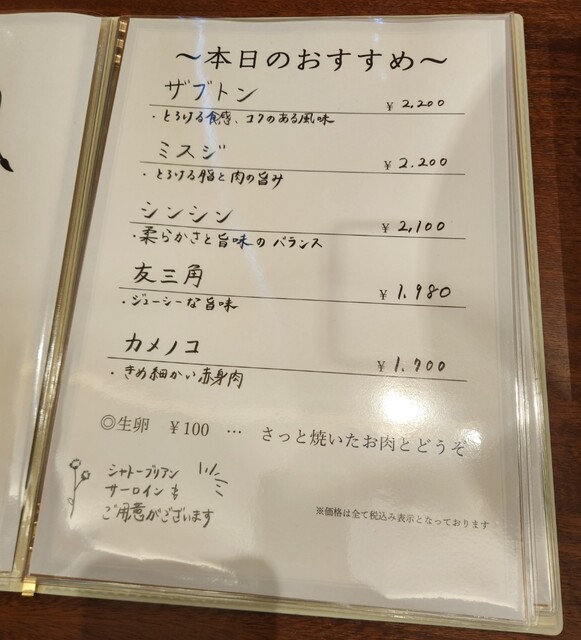 ～本日のおすすめ～
ザブトン ¥2,200
・とろける食感、コクのある風味
ミスジ ¥2.200
・とろける脂と肉の旨み
シンシン ¥2,100
・柔らかさと旨味のバランス
友三角 ¥1.980
・ジューシーな旨味
カメノコ ¥1.700
・きめ細かい赤身肉
◎生卵 ¥100 … さっと焼いたお肉とどうぞ
シャトーブリアン
サーロインも
ご用意がございます
※価格は全て税込み表示となっております